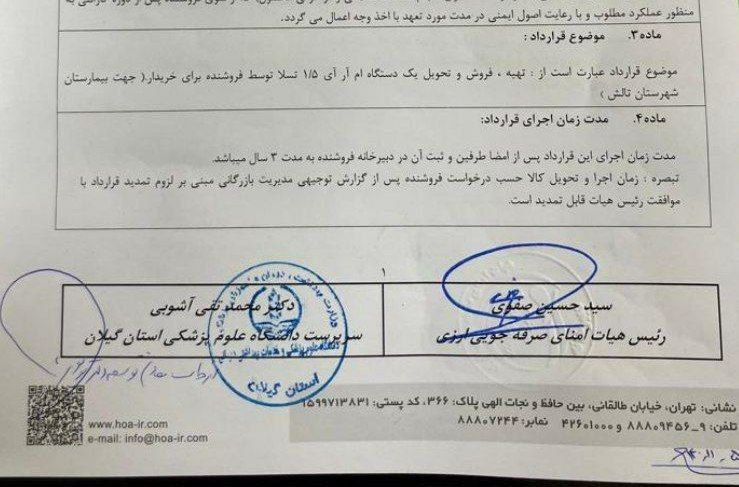 منظور عملکرد مطلوب و با رعایت اصول ایمنی در مدت مورد تعهد با اخذ وجه اعمال می گردد.
ماده۳. موضوع قرارداد :
موضوع قرارداد عبارت است از : تهیه ، فروش و تحویل یک دستگاه ام آر آی ۱/۵ تسلا توسط فروشنده برای خریدار.( جهت بیمارستان
شهرستان تالش )
ماده۴. مدت زمان اجرای قرارداد:
مدت زمان اجرای این قرارداد پس از امضا طرفین و ثبت آن در دبیرخانه فروشنده به مدت ۳ سال میباشد.
تبصره : زمان اجرا و تحویل کالا حسب درخواست فروشنده پس از گزارش توجیهی مدیریت بازرگانی مبنی بر لزوم تمدید قرارداد با
موافقت رئیس هیات قابل تمدید است.
۱
سید حسین صفوی
رئیس هیات امنای صرفه جویی ارزی
دکتر محمد تقی آشوبی
سرپرست دانشگاه علوم پزشکی استان گیلان
استان گیلان
نشانی: تهران، خیابان طالقانی، بین حافظ و نجات الهی پلاک: ۳۶۶، کد پستی: ۱۵۹۹۷۱۳۸۳۱
تلفن: ۹_۸۸۸۰۹۴۵۶ و ۴۲۶۰۱۰۰۰ نمابر: ۸۸۸۰۷۲۴۴
www.hoa-ir.com
e-mail: info@hoa-ir.com